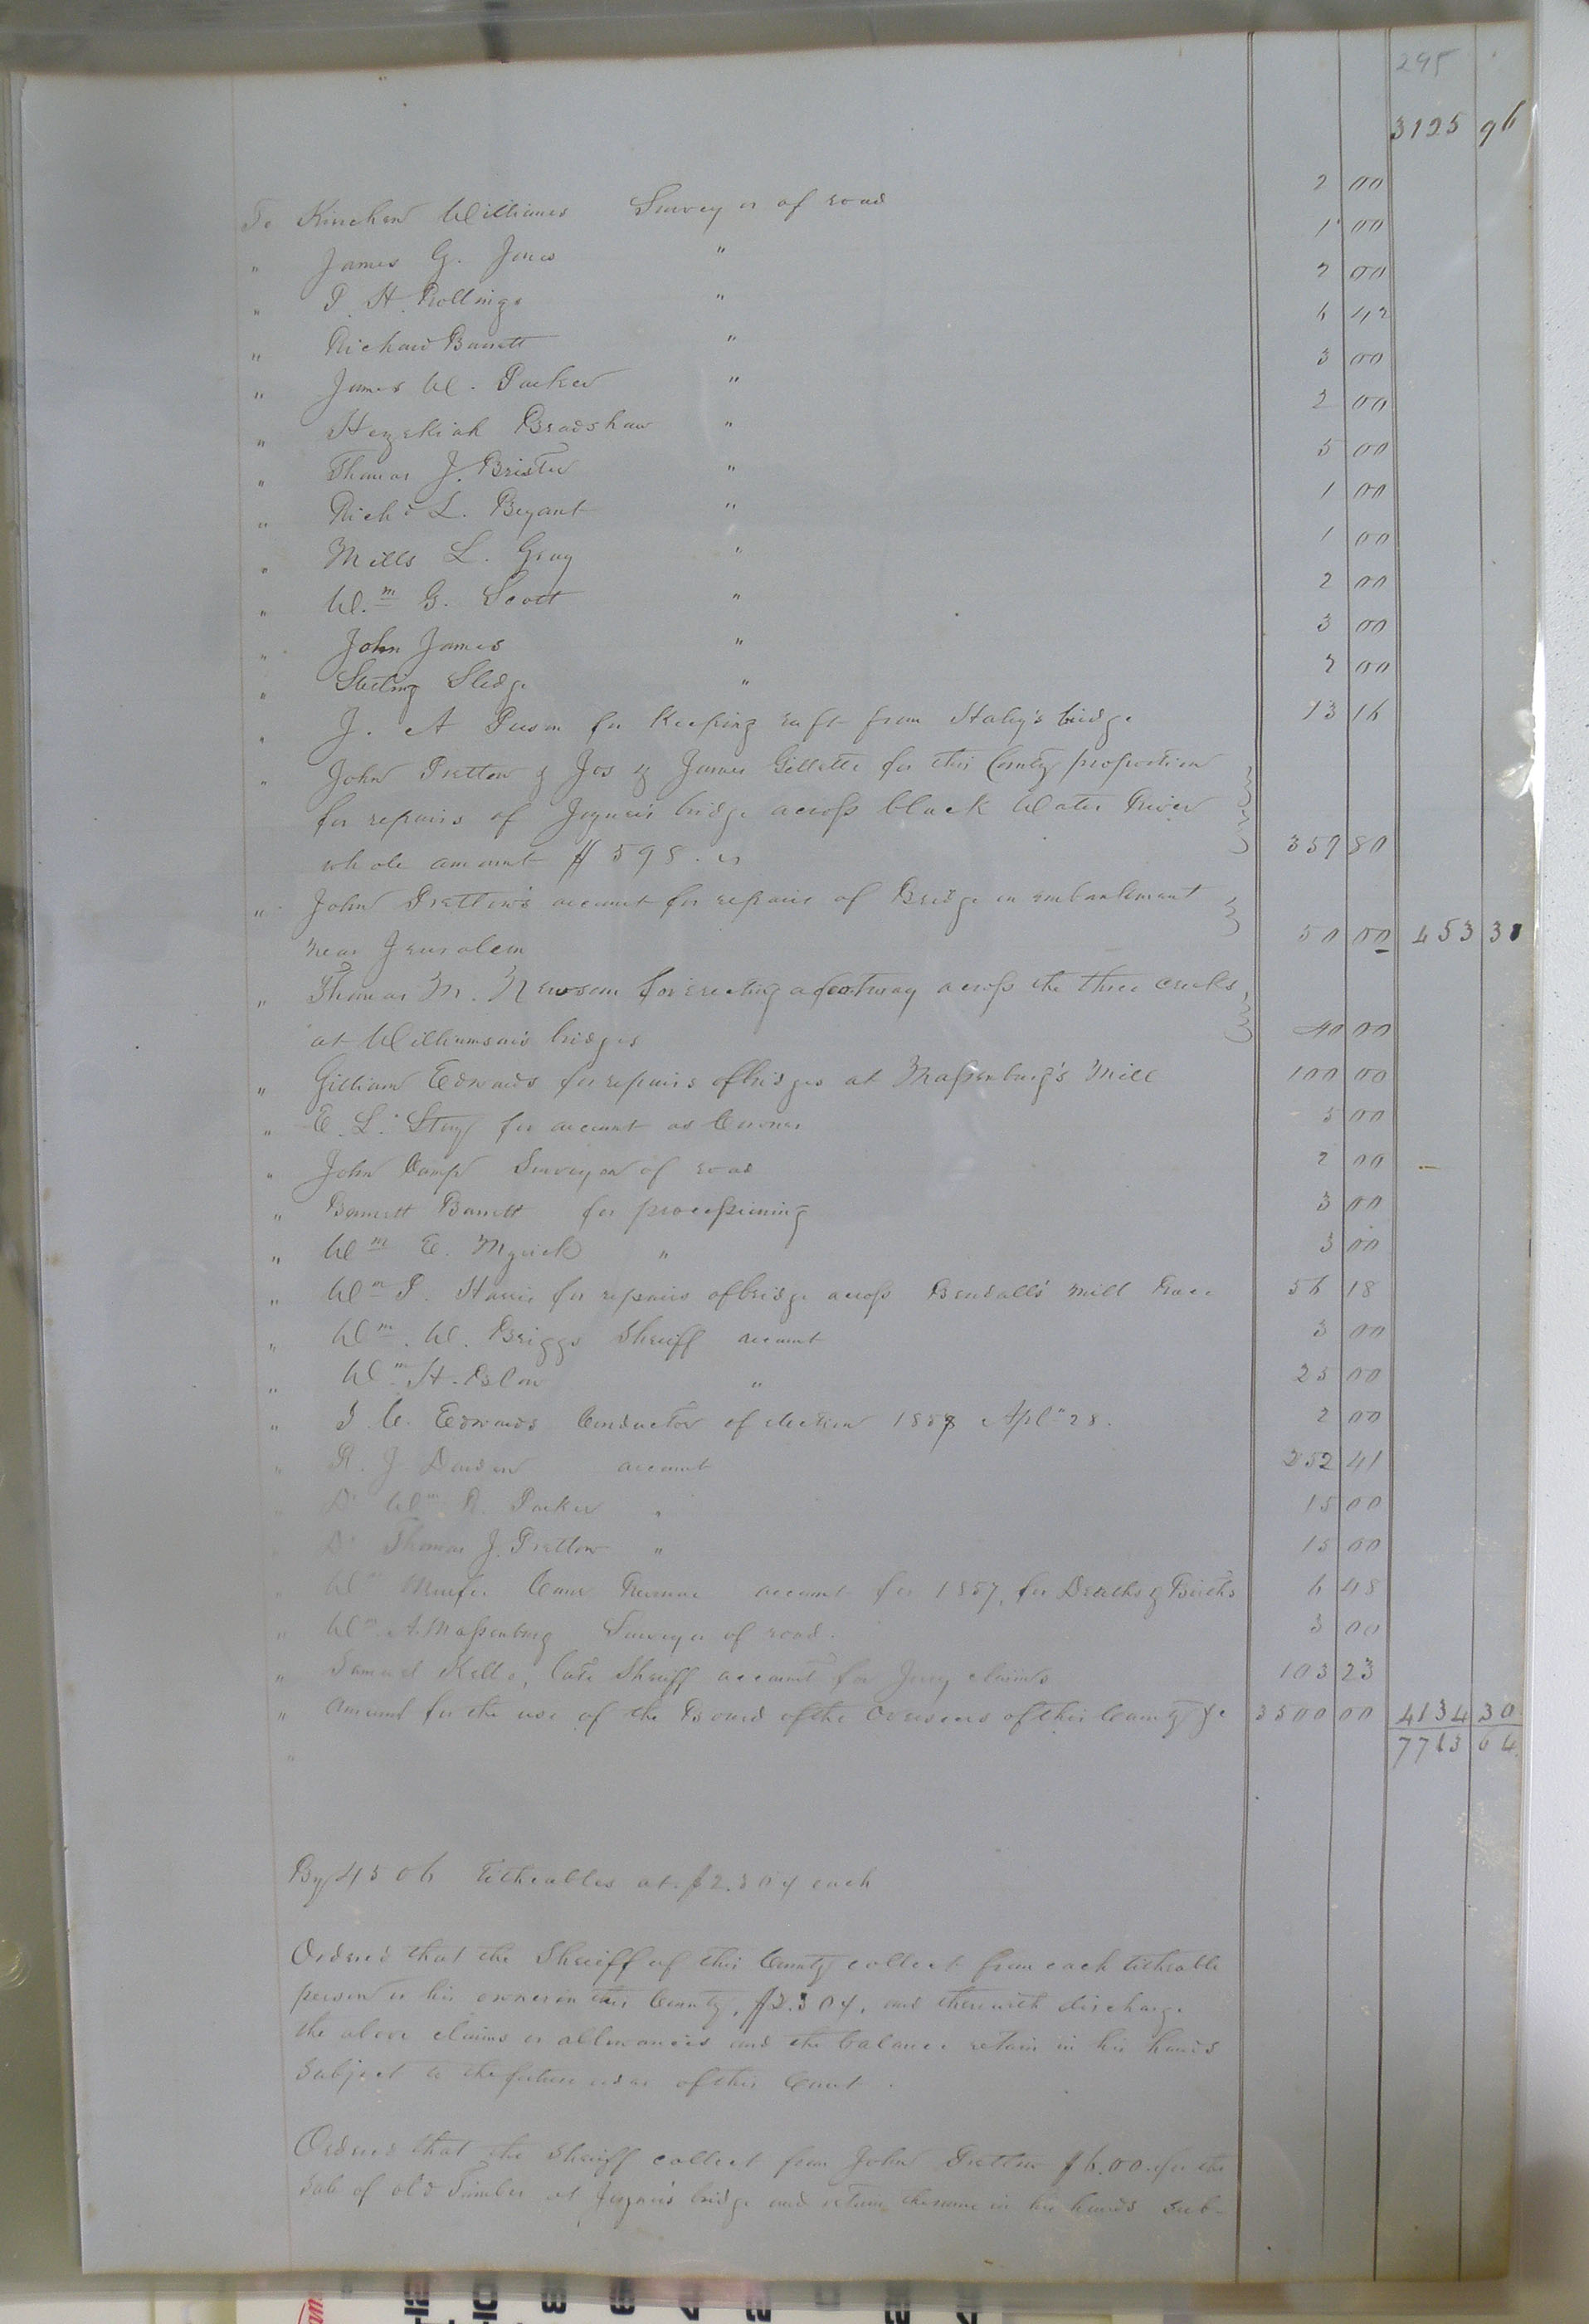 295
3125 96
To Kinchen Williams Surveyor of road 2 00
" James G. Jones " 1 00
" P. H. Rollings " 2 00
" Richard Barrett " 6 42
" James W. Parker " 3 00
" Hezekiah Bradshaw " 2 00
" Thomas J. Brister " 5 00
" Richd L. Bryant " 1 00
" Mills L. Gray " 1 00
" Wm G. Scott " 2 00
" John James " 3 00
" Sterling Sledge " 2 00
" J. A Person for Keeping raft from Haley's bridge 13 16
" John Pretlow & Jos & James Gillette for this County proportion
for repairs of Joyner's bridge across black Water River
whole amount $ 598. 359 80
" John Pretlow's account for repairs of Bridge in embankment
near Jerusalem 50 00 453 38
" Thomas M. Newsom for erecting a footway across the three creeks
at Williamson's bridges 40 00
" Gilliam Edwards for repairs of bridges at Massenburg's Mill 100 00
" E. L. Story for account as Coroner 5 00
" John Camp Surveyor of road 2 00
" Bennett Barrett for processioning 3 00
" Wm E. Myrick " 3 00
" Wm P. Harris for repairs of bridge across Bendall's mill Race 56 18
" Wm W. Briggs Sheriff account 3 00
" Wm H. Blow " 25 00
" J. C. Edwards Conductor of election 1858 Apl 28. 2 00
" R. J. Darden account 252 41
" Dr Wm R. Parker " 15 00
" Dr Thomas J. Pretlow " 15 00
" Wm Comr Revenue account for 1857, for Deaths & Births 6 48
" Wm A. Massenburg Surveyor of road. 3 00
" Samuel Kello, late Sheriff account for Jury claims 103 23
" Amount for the use of the Board of the Overseers of this County &c 3500 00 4134 30
" 7713 64
By 4506 titheables at $2.30 each
Ordered that the Sheriff of this County collect from each titheable
person or his owner in this County, $2.30, and therewith discharge
the above claims or allowances and the balance retain in his hands
Subject to the future order of this Court.
Ordered that the Sheriff collect from John Pretlow $6.00. for the
sale of old Timber at Joyner's bridge and retain the same in his hands sub-